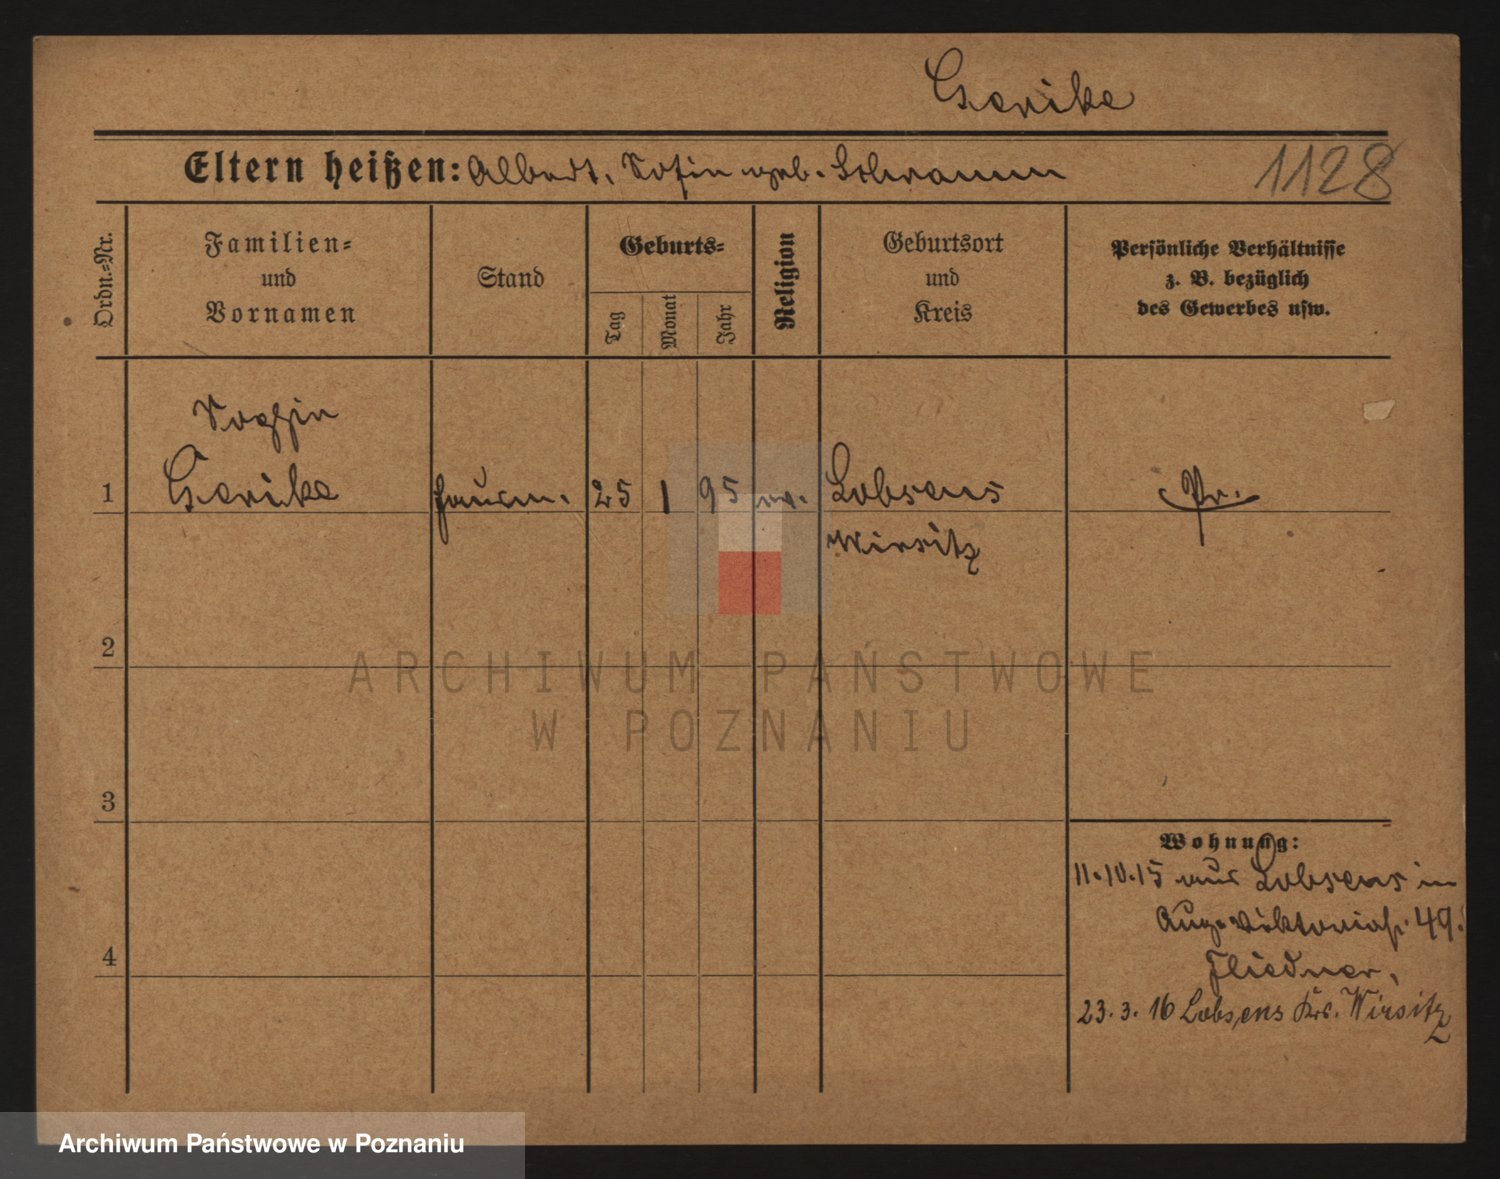 Gerike
Eltern heißen: Albert, Sofie geb. Schramm
1128
Ordn.-Nr.
Familien-
und
Vornamen
Stand
Geburts-
Tag
Monat
Jahr
Religion
Geburtsort
und
Kreis
Persönliche Verhältnisse
z. B. bezüglich
des Gewerbes usw.
Sophie
1 Gerike 25 1 95 ev. Lobsens Pr.
Wirsitz
2
ARCHIWUM PAŃSTWOWE
W POZNANIU
3
Wohnung:
11.10.15 aus Lobsens in
Aug. Viktoriastr. 49.
4
Fliedner,
23.3.16 Lobsens Krs. Wirsitz
Archiwum Państwowe w Poznaniu